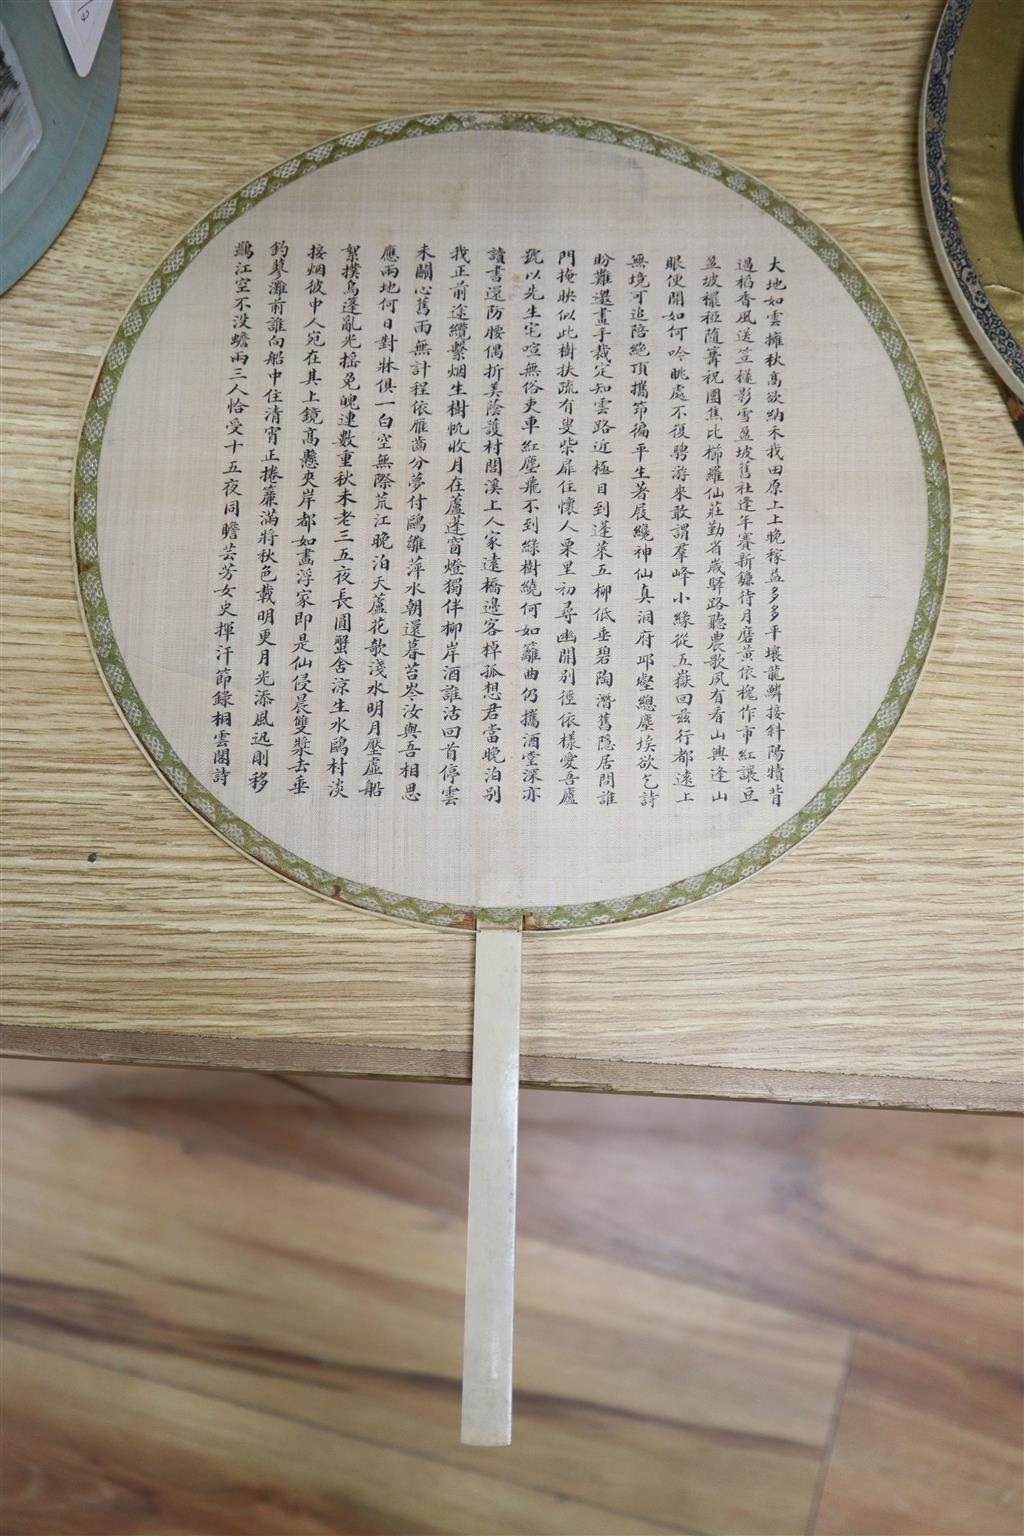 大地如雲擁秋高欲納禾我田原上上晚稼益多多平壤龍鱗接斜陽犢背
過稻香風送笠槎影雪盈坡舊社逢年賽新鐮待月磨黃依槐作市紅讓豆
盈坡䆉稏隨篝祝團焦比櫛羅仙莊勤省歲驛路聽農歌夙有看山興逢山
眼便開如何吟眺處不復騁游來敢謂羣峰小緣從五嶽回茲行都遠上
無境可追陪絕頂攜笻徧平生著屐纔神仙真洞府邱壑總塵埃欲乞詩
盼難還畫手裁定知雲路近極目到蓬萊五柳低垂碧陶潛舊隱居問誰
門掩映似此樹扶疏有叟柴扉住懷人栗里初尋幽開別徑依樣愛吾廬
號以先生宅喧無俗吏車紅塵飛不到綠樹繞何如籬曲仍攜酒堂深亦
讀書還防腰偶折美蔭護村閭溪上人家遠橋邊客棹孤想君當晚泊別
我正前途纜繫烟生樹帆收月在蘆蓬窗燈獨伴柳岸酒誰沽回首停雲
未關心舊雨無計程依雁齒分夢付鷗雛萍水朝還暮苔岑汝與吾相思
應兩地何日對牀俱一白空無際荒江晚泊天蘆花欹淺水明月壓虛船
絮撲烏蓬亂光搖兔魄連數重秋未老三五夜長圓蟹舍涼生水鷗村淡
接烟彼中人宛在其上鏡高懸夾岸都如畫浮家即是仙侵晨雙槳去垂
釣蓼灘前誰向船中住清宵正捲簾滿將秋色載明更月光添風迅剛移
鷁江空不沒蟾雨三人恰受十五夜同瞻芸芳女史揮汗節錄桐雲閣詩